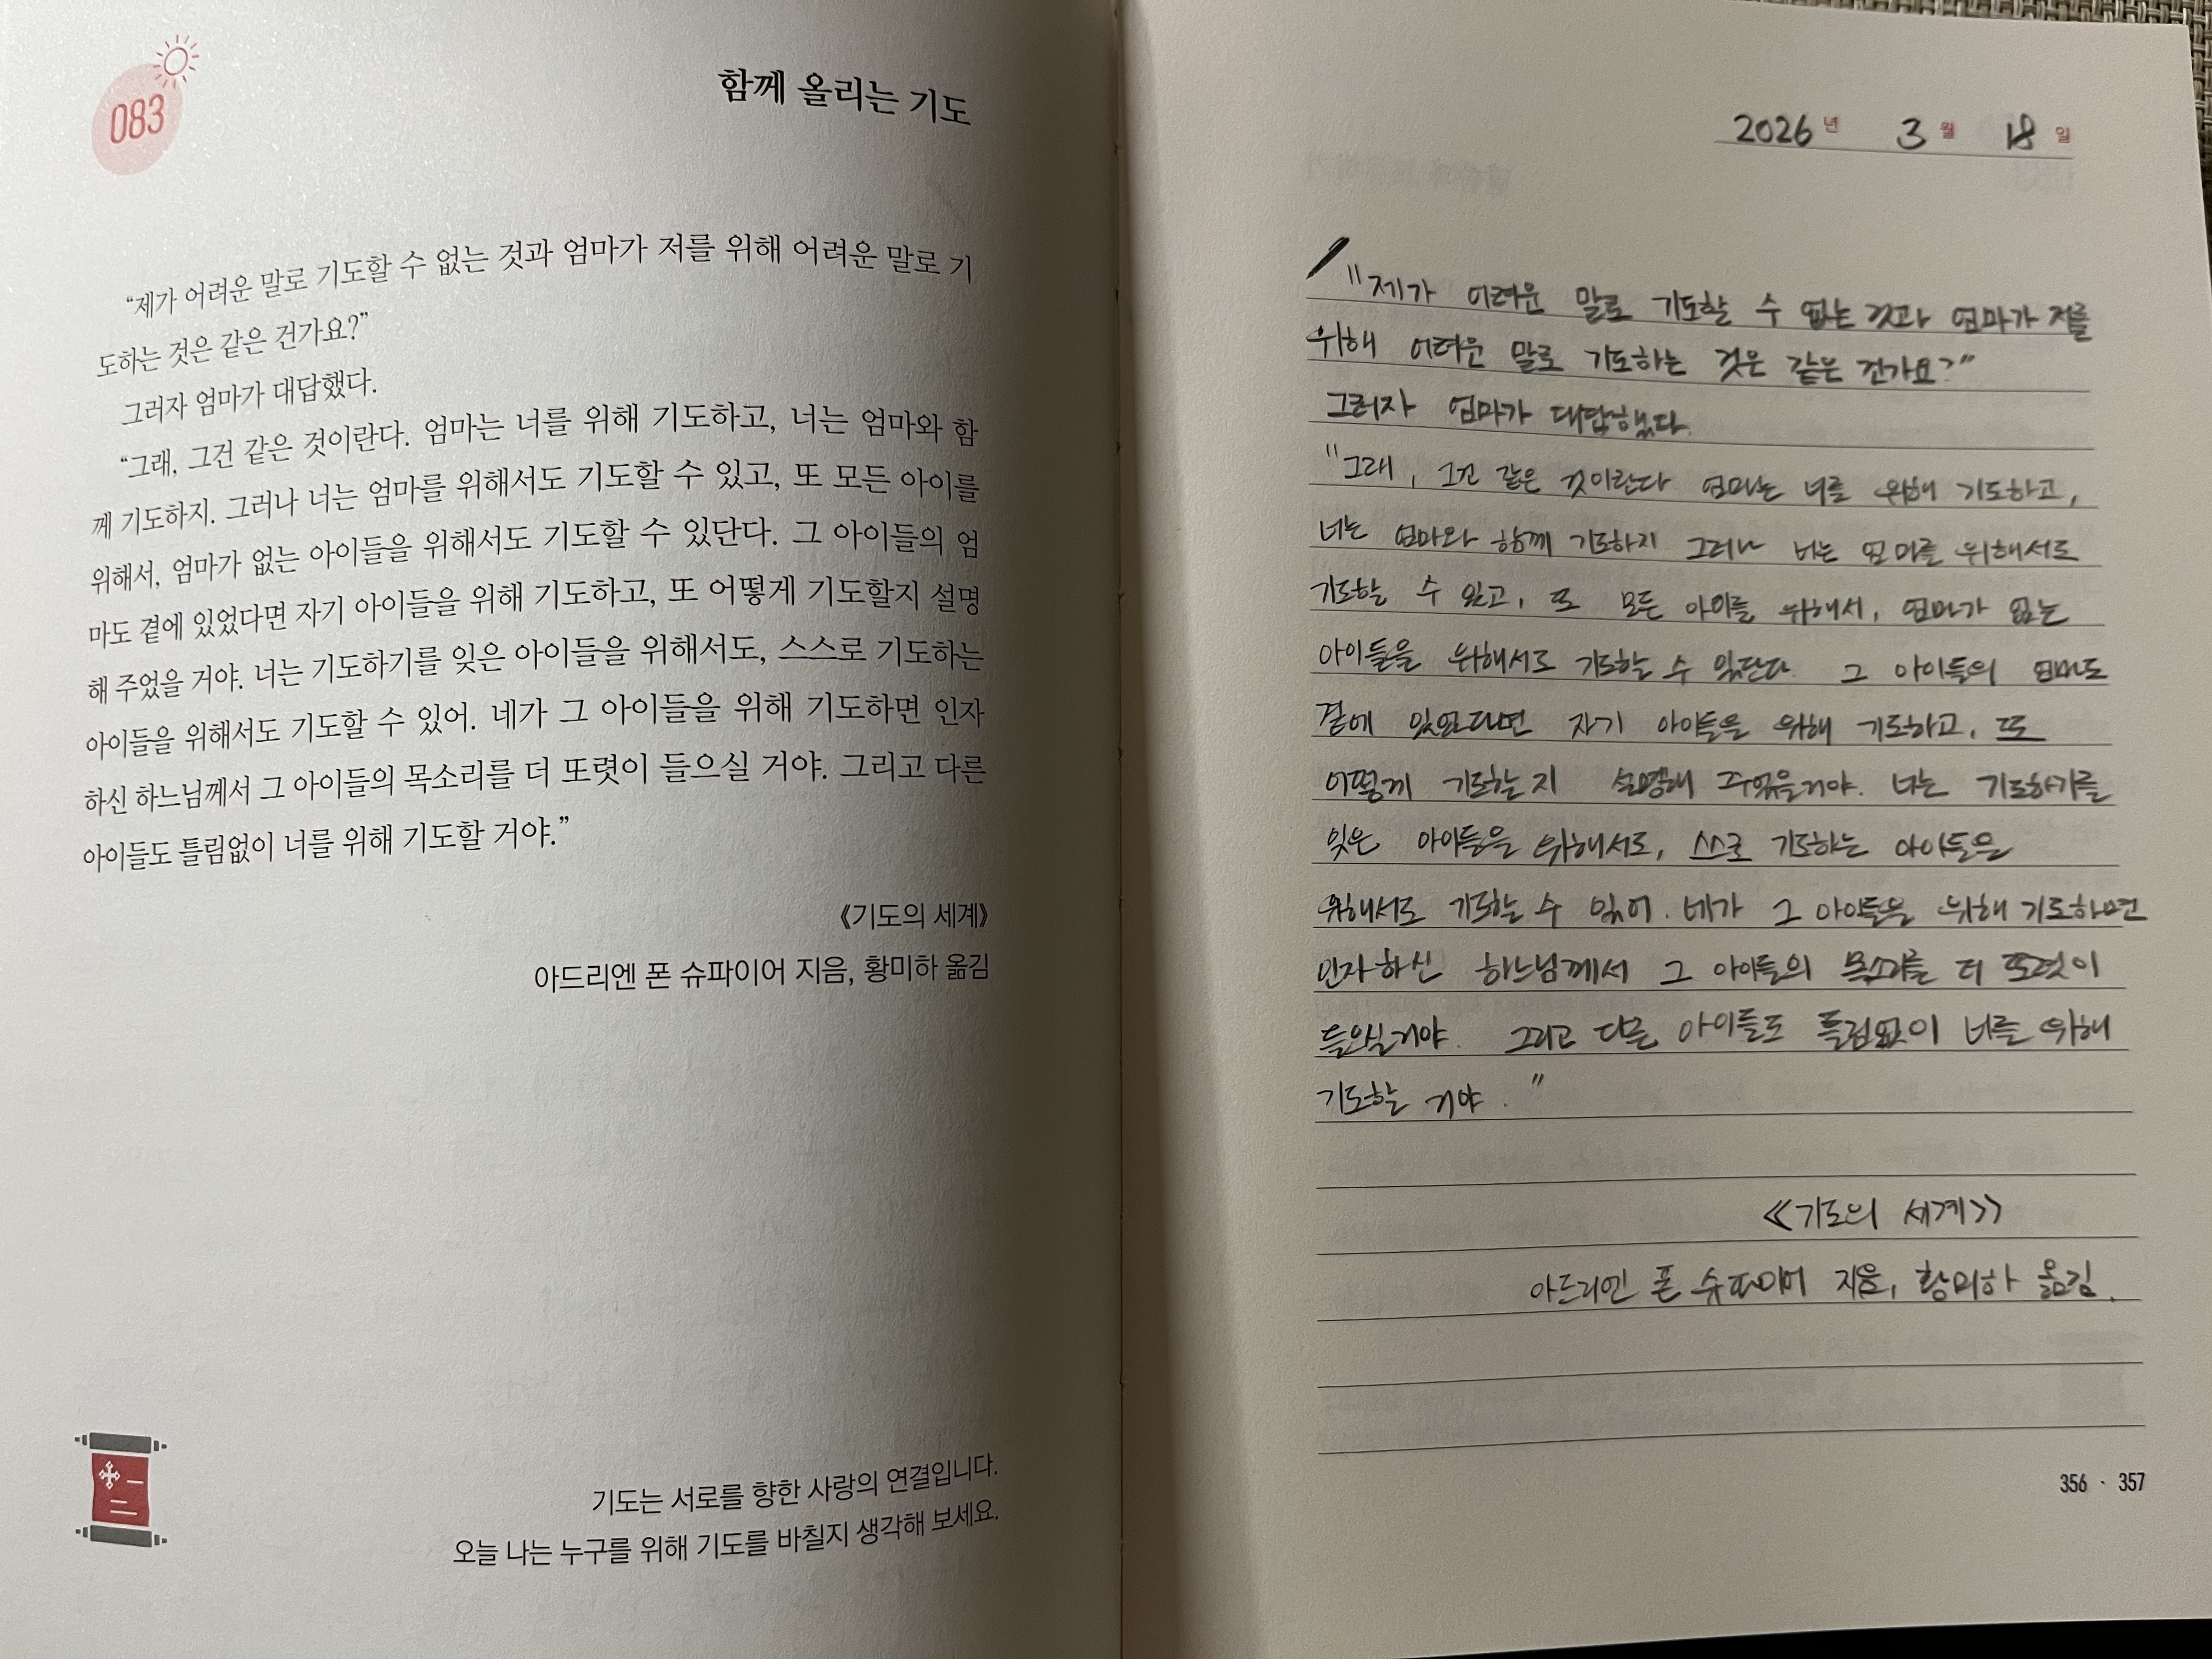 083
함께 올리는 기도
“제가 어려운 말로 기도할 수 없는 것과 엄마가 저를 위해 어려운 말로 기
도하는 것은 같은 건가요?”
그러자 엄마가 대답했다.
“그래, 그건 같은 것이란다. 엄마는 너를 위해 기도하고, 너는 엄마와 함
께 기도하지. 그러나 너는 엄마를 위해서도 기도할 수 있고, 또 모든 아이를
위해서, 엄마가 없는 아이들을 위해서도 기도할 수 있단다. 그 아이들의 엄
마도 곁에 있었다면 자기 아이들을 위해 기도하고, 또 어떻게 기도할지 설명
해 주었을 거야. 너는 기도하기를 잊은 아이들을 위해서도, 스스로 기도하는
아이들을 위해서도 기도할 수 있어. 네가 그 아이들을 위해 기도하면 인자
하신 하느님께서 그 아이들의 목소리를 더 또렷이 들으실 거야. 그리고 다른
아이들도 틀림없이 너를 위해 기도할 거야.”
《기도의 세계》
아드리엔 폰 슈파이어 지음, 황미하 옮김
기도는 서로를 향한 사랑의 연결입니다.
오늘 나는 누구를 위해 기도를 바칠지 생각해 보세요.
2026년 3월 18일
"제가 어려운 말로 기도할 수 없는 것과 엄마가 저를
위해 어려운 말로 기도하는 것은 같은 건가요?"
그러자 엄마가 대답했다.
"그래, 그건 같은 것이란다 엄마는 너를 위해 기도하고,
너는 엄마와 함께 기도하지 그러나 너는 엄마를 위해서도
기도할 수 있고, 또 모든 아이를 위해서, 엄마가 없는
아이들을 위해서도 기도할 수 있단다. 그 아이들의 엄마도
곁에 있었다면 자기 아이들을 위해 기도하고, 또
어떻게 기도할지 설명해 주었을거야. 너는 기도하기를
잊은 아이들을 위해서도, 스스로 기도하는 아이들을
위해서도 기도할 수 있어. 네가 그 아이들을 위해 기도하면
인자하신 하느님께서 그 아이들의 목소리를 더 또렷이
들으실거야. 그리고 다른 아이들도 틀림없이 너를 위해
기도할 거야."
《기도의 세계》
아드리엔 폰 슈파이어 지음, 황미하 옮김.
356 · 357